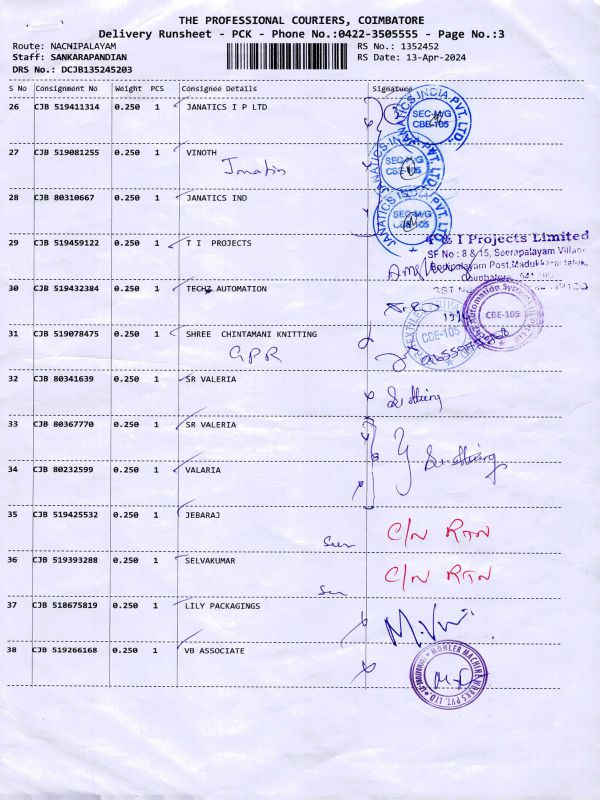 THE PROFESSIONAL COURIERS, COIMBATORE
Delivery Runsheet - PCK - Phone No.:0422-3505555 - Page No.:3
Route: NACHIPALAYAM
Staff: SANKARAPANDIAN
DRS No.: DCJB135245203
RS No.: 1352452
RS Date: 13-Apr-2024
S No Consignment No Weight PCS Consignee Details Signature
26 CJB 519411314 0.250 1 JANATICS I P LTD
JANATICS INDIA PVT. LTD.
SEC-M/G
CBE-105
27 CJB 519081255 0.250 1 VINOTH
Janatics
JANATICS INDIA PVT. LTD.
SEC-M/G
CBE-105
28 CJB 80310667 0.250 1 JANATICS IND
JANATICS INDIA PVT. LTD.
SEC-M/G
CBE-105
29 CJB 519459122 0.250 1 T I PROJECTS
T & I Projects Limited
SF No : 8 & 15, Seerapalayam Village
Bodipalayam Post, Madukkarai Taluk,
Coimbatore
GST No
30 CJB 519432384 0.250 1 TECHZ AUTOMATION
CBE-105
31 CJB 519078475 0.250 1 SHREE CHINTAMANI KNITTING
GPR
CBE-105
32 CJB 80341639 0.250 1 SR VALERIA
33 CJB 80367770 0.250 1 SR VALERIA
34 CJB 80232599 0.250 1 VALARIA
35 CJB 519425532 0.250 1 JEBARAJ
C/N RTN
36 CJB 519393288 0.250 1 SELVAKUMAR
C/N RTN
37 CJB 518675819 0.250 1 LILY PACKAGINGS
38 CJB 519266168 0.250 1 VB ASSOCIATE